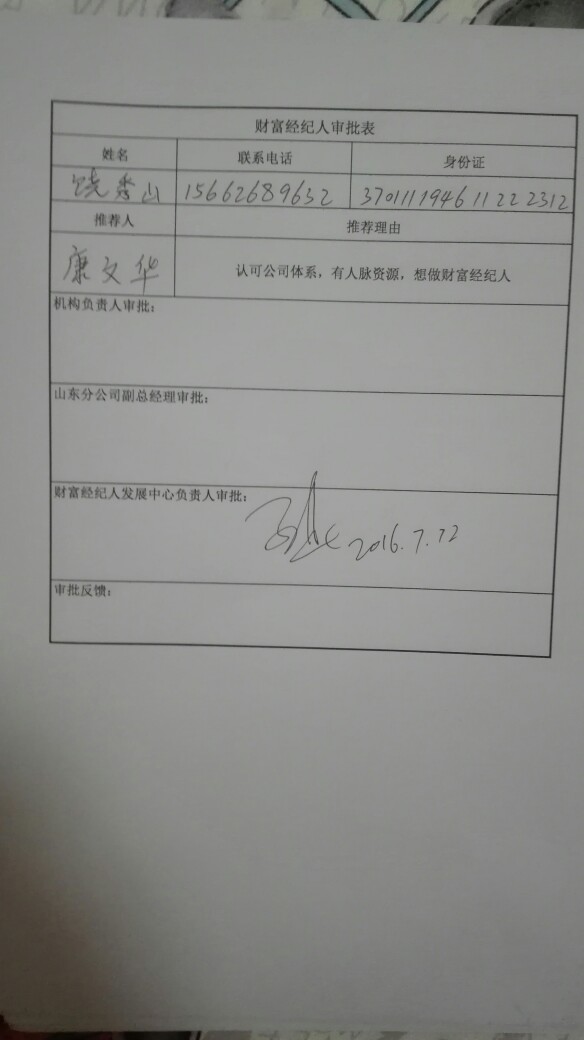 财富经纪人审批表
姓名 联系电话 身份证
饶秀山 15662689632 370111194611222312
推荐人 推荐理由
康文华 认可公司体系，有人脉资源，想做财富经纪人
机构负责人审批：
山东分公司副总经理审批：
财富经纪人发展中心负责人审批：
2016.7.12
审批反馈：